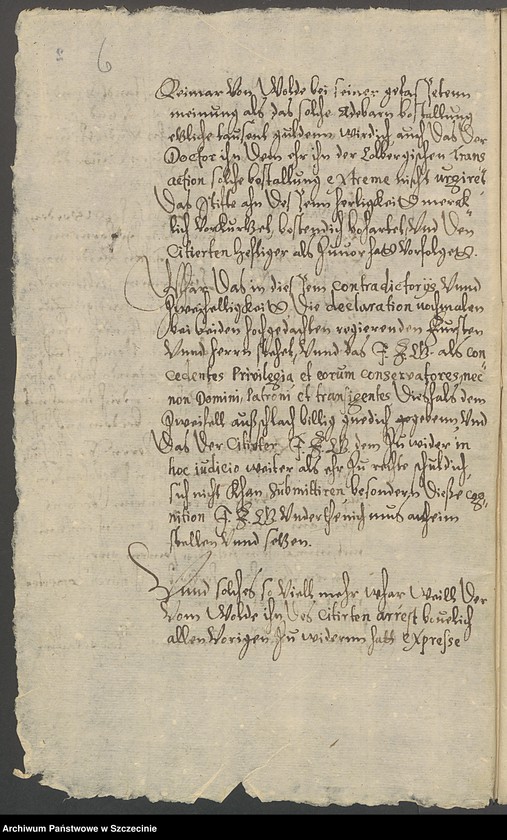 6
Reimar von Wolde bei seiner gefasseten
meinung als das solche Adebarn bostallung
etzliche tausent guldenn wirdich auch das der
Doctor ihn dem ehr ihn der Colbergischen trans
action solche bostallung extreme nicht urgiret
das Stifte ahn dessenn herligkeit merck
lich vorkurtzet, bostendich boharret, und den
Citierten hefftiger als zuuor hatt vorfolget.
Whar das in diessem contradictorijs unnd
zweihelligkeit, die declaration nochmalen
bei beiden hochgedachten regierenden Fursten
unnd herrn stehet, unnd das F. F. G. als con
cedentes Privilegia et eorum conservatores, nec
non Domini, Patroni et transigentes diesfals dem
zweifell ausschlach billig gnedich gegebenn und
das der Citirter F. F. G. dem zu wider in
hoc iudicio weiter als ehr zu rechte schuldich,
sich nicht khan submittiren besondern diesse cog
nition F. F. G. underthenich mus anheim
stellen unnd setzen.
Unnd solches so viell mehr whar weill der
vom Wolde ihn des Citirten arrest bouelich
allen vorigen zu widernn hatt expresse
Archiwum Państwowe w Szczecinie